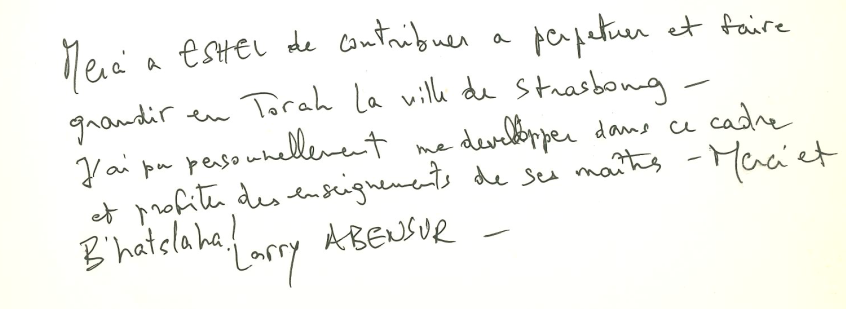 Merci a ESHEL de contribuer a perpetuer et faire
grandir en Torah la ville de Strasbourg -
J'ai pu personnellement me developper dans ce cadre
et profiter des enseignements de ses maîtres - Merci et
B'hatslaha! Larry ABENSUR -